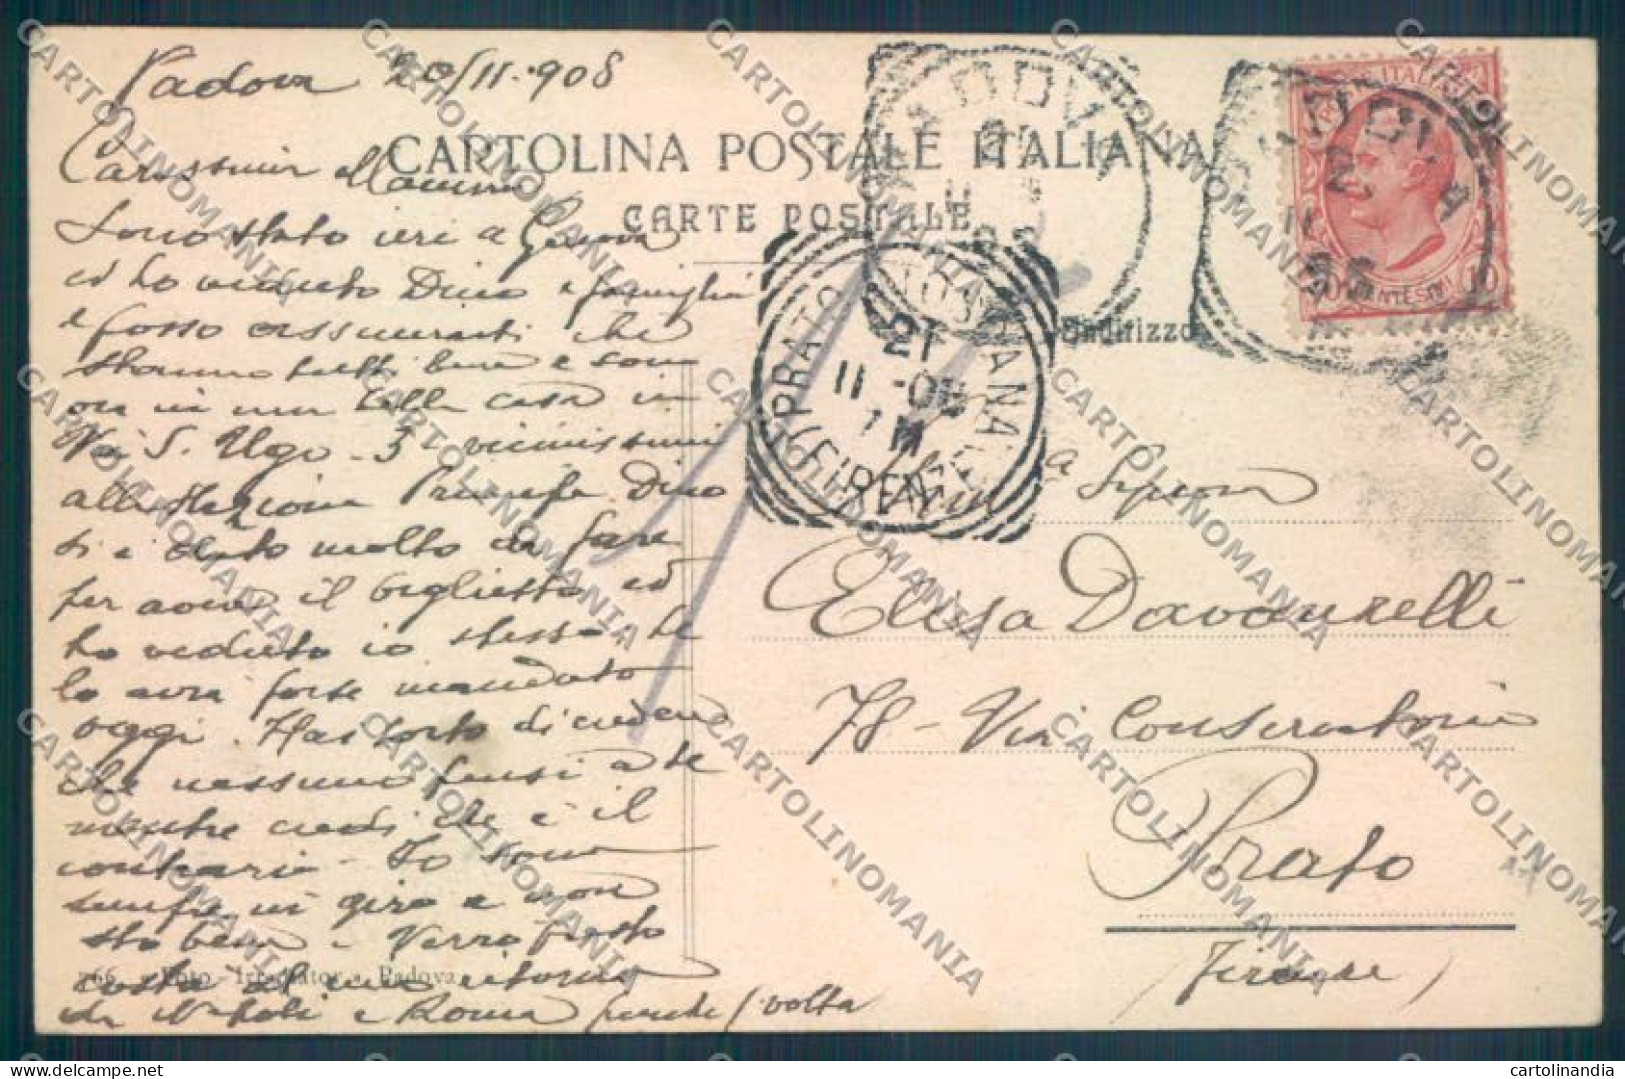 Padova 20/11-908
CARTOLINA POSTALE ITALIANA
CARTE POSTALE
Carissima Mamma
Sono stato ieri a Genova
ed ho veduto Dino e famiglia
e posso assicurarti che
stanno tutti bene e sono
ora in una bella casa in
Via S. Ugo - 3 - vicinissimi
alla stazione Dino
si è dato molto da fare
per avere il biglietto ed
ho veduto io stesso che
lo avrà forse mandato
oggi. Hai torto di credere
che nessuno pensi a te
mentre credi che è il
contrario - Io sono
sempre in giro e non
sto bene - Verrò presto
costà al mio ritorno
da Napoli e Roma / volta
766 - Foto Irradiator - Padova
PADOVA
PADOVA
2
11
PRATO TOSCANA
(FIRENZE)
21
11-08
7M
POSTE ITALIANE
10 CENTESIMI 10
Indirizzo
a Signora
Elisa Davanzelli
78 - Via Conservatorio
Prato
Firenze)
CARTOLINOMANIA
cartolinandia